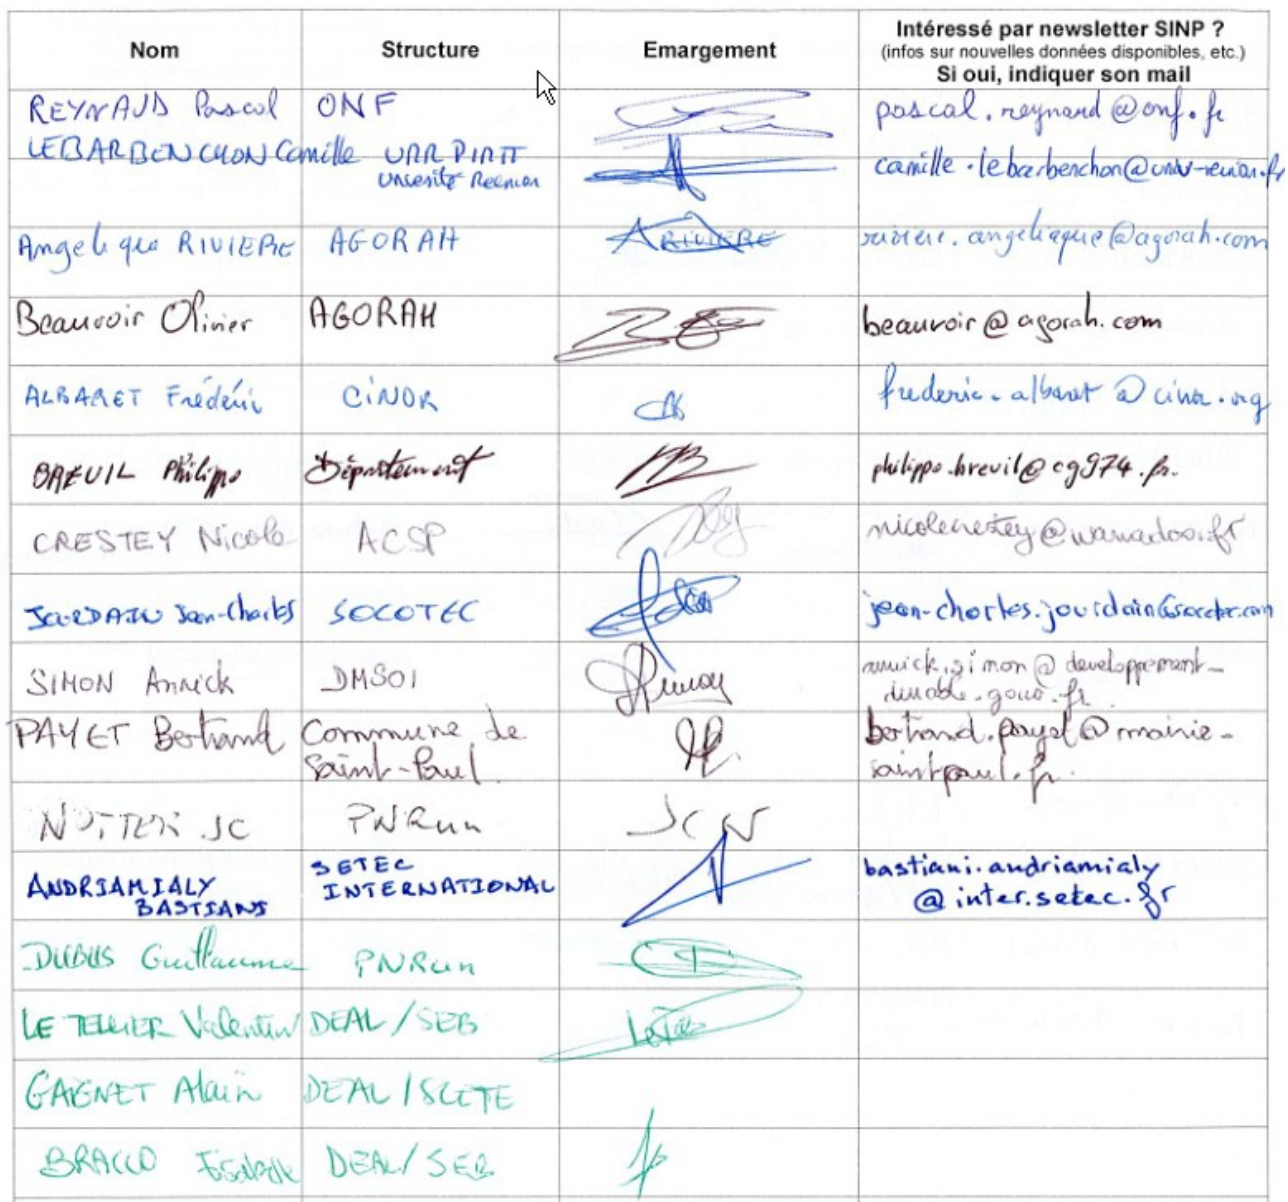 Nom Structure Emargement Intéressé par newsletter SINP ?
(infos sur nouvelles données disponibles, etc.)
Si oui, indiquer son mail
REYNAUD Pascal ONF pascal.reynaud@onf.fr
LEBARBENCHON Camille UMR PIMIT camille.lebarbenchon@univ-reunion.fr
Université Réunion
Angelique RIVIERE AGORAH A RIVIERE riviere.angelique@agorah.com
Beauvoir Olivier AGORAH beauvoir@agorah.com
ALBARET Frédéric CINOR frederic.albaret@cinor.org
BREUIL Philippe Département philippe.breuil@cg974.fr
CRESTEY Nicole ACSP nicolecrestey@wanadoo.fr
JOURDAIN Jean-Charles SOCOTEC jean-charles.jourdain@socotec.com
SIMON Annick DMSOI annick.simon@developpement-
durable.gouv.fr
PAYET Bertrand Commune de bertrand.payet@mairie-
Saint-Paul saintpaul.fr
NOTTER JC PNRun JCN
ANDRIAMIALY SETEC bastiani.andriamialy
BASTIANI INTERNATIONAL @inter.setec.fr
DUBUS Guillaume PNRun
LE TELLIER Valentin DEAL/SEB
GAGNET Alain DEAL/SCETE
BRACCO Isabelle DEAL/SEB